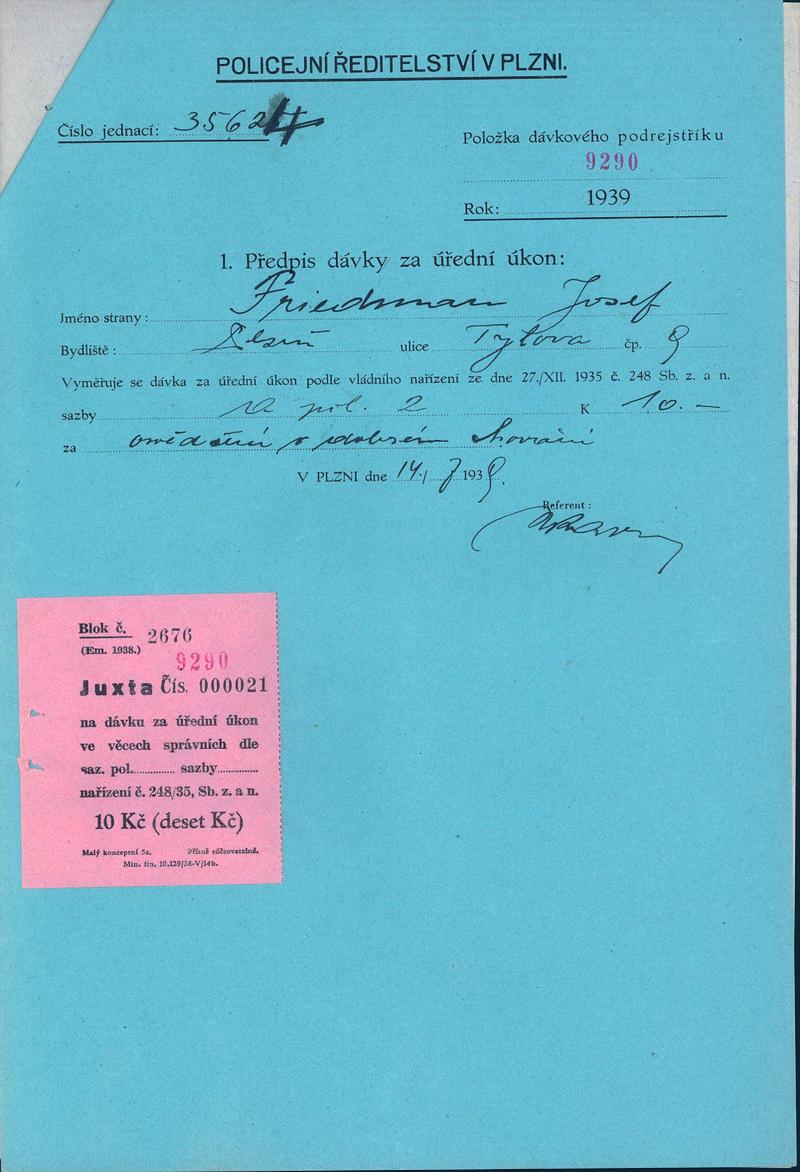 POLICEJNÍ ŘEDITELSTVÍ V PLZNI.
Číslo jednací: 3562
Položka dávkového podrejstříku
9290
Rok: 1939
1. Předpis dávky za úřední úkon:
Jméno strany: Friedman Josef
Bydliště: Plzeň ulice Tylova čp. 9
Vyměřuje se dávka za úřední úkon podle vládního nařízení ze dne 27./XII. 1935 č. 248 Sb. z. a n.
sazby pol. 2 K 10.—
za
V PLZNI dne 14./7 1939.
Referent:
Blok č. 2676
(Em. 1938.)
9290
Juxta Čís. 000021
na dávku za úřední úkon
ve věcech správních dle
saz. pol. sazby
nařízení č. 248/35, Sb. z. a n.
10 Kč (deset Kč)
Malý konceptní 5a. Přísně súčtovatelné.
Min. fin. 10.129/38-V/14b.